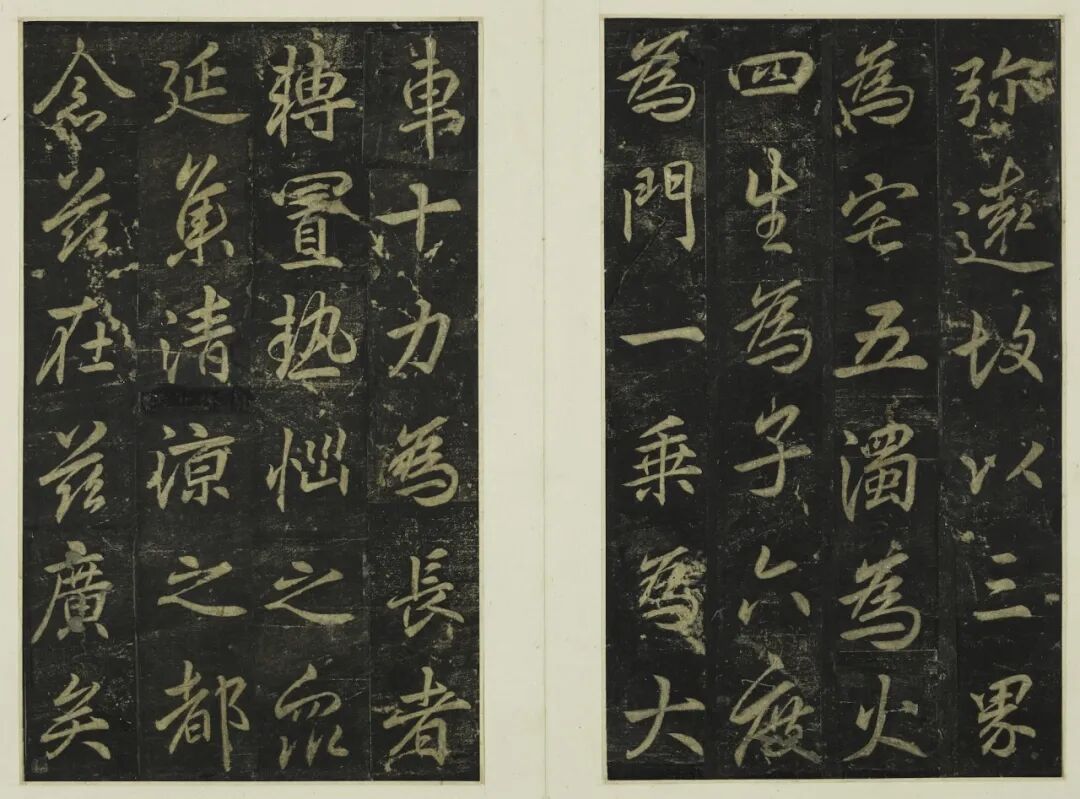 弥遠故以三界
為宅五濁為火
四生為子六度
為門一乗為大
車十力為長者
轉置熱惱之衆
延集清涼之都
念茲在茲廣矣